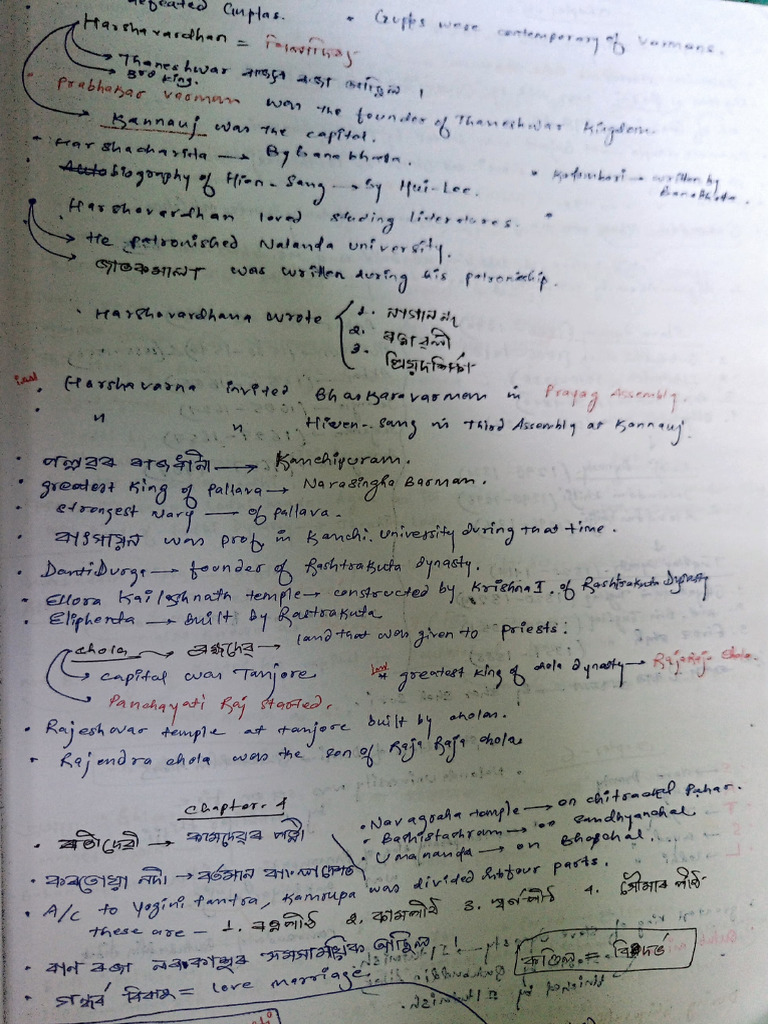 defeated Guptas. • Guptas were contemporary of Varmans.
Harshavardhan = শিলাদিত্য
Thaneshwar ৰাজ্যৰ ৰজা আছিল।
3rd King.
• Prabhakar Varman was the founder of Thaneshwar Kingdom.
Kannauj was the capital.
• Harshacharita → By Banabhatta.
• Autobiography of Hien-Sang → by Hui-Lee. • Kadambari → written by Banabhatta.
Harshavardhan loved studing literatures.
He patronished Nalanda University.
জাতকমালা was written during his patronship.
• Harshavardhana wrote
1. নাগানন্দ
2. ৰত্নাৱলী
3. প্ৰিয়দৰ্শিকা
• Harshavarna invited Bhaskaravarman in Prayag Assembly.
• " " Hiuen-Sang in Third Assembly at Kannauj.
• পল্লৱৰ ৰাজধানী → Kanchipuram.
• greatest King of Pallava → Narasingha Barman.
• strongest Navy — of pallava.
• was prof. in Kanchi University during that time.
• Danti Durga → founder of Rashtrakuta dynasty.
• Ellora Kailashnath temple → constructed by Krishna I. of Rashtrakuta Dynasty
• Eliphenta → built by Rastrakuta
• Chola → ব্ৰহ্মদেৱ → land that was given to priests.
→ capital was Tanjore * greatest king of chola dynasty → RajaRaja chola.
Panchayati Raj started.
• Rajeshwar temple at tanjore built by cholas.
• Rajendra chola was the son of Raja Raja chola
Chapter-4
• ৰতীদেৱী → কামদেৱৰ পত্নী
• Navagraha temple → on chitrachal Pahar.
• Bashistashram → on sandhyanchal
• Umananda → on Bhapchal.
• কৰতোৱা নদী → বৰ্তমান বাংলাদেশত
• A/c to Yogini tantra, Kamrupa was divided into four parts.
these are – 1. ৰত্নপীঠ 2. কামপীঠ 3. স্বৰ্ণপীঠ 4. সৌমাৰ পীঠ
• বাণ ৰজা নৰকাসুৰৰ সমসাময়িক আছিল
কুণ্ডিল = বিদৰ্ভ
• গন্ধৰ্ব বিবাহ = love marriage